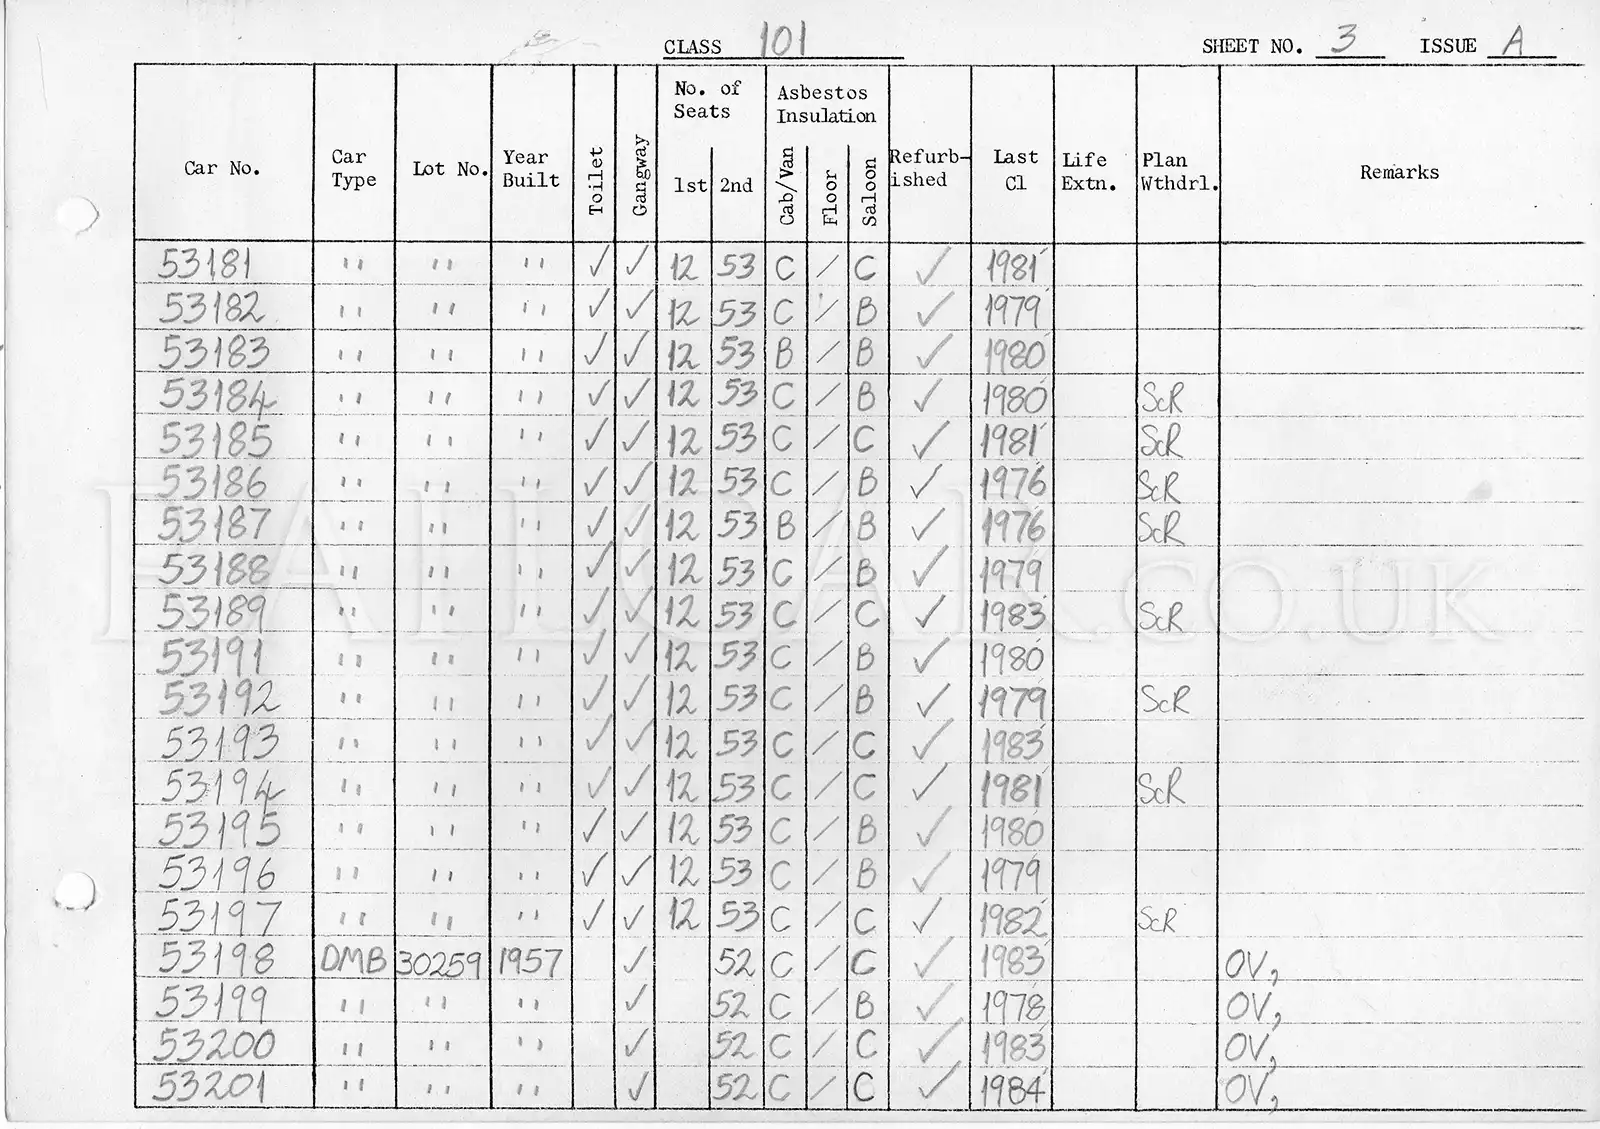 CLASS 101 SHEET NO. 3 ISSUE A
Car No. Car Type Lot No. Year Built Toilet Gangway No. of Seats 1st 2nd Asbestos Insulation Cab/Van Floor Saloon Refurb-ished Last Cl Life Extn. Plan Wthdrl. Remarks
53181 " " " ✓ ✓ 12 53 C / C ✓ 1981
53182 " " " ✓ ✓ 12 53 C / B ✓ 1979
53183 " " " ✓ ✓ 12 53 B / B ✓ 1980
53184 " " " ✓ ✓ 12 53 C / B ✓ 1980 ScR
53185 " " " ✓ ✓ 12 53 C / C ✓ 1981 ScR
53186 " " " ✓ ✓ 12 53 C / B ✓ 1976 ScR
53187 " " " ✓ ✓ 12 53 B / B ✓ 1976 ScR
53188 " " " ✓ ✓ 12 53 C / B ✓ 1979
53189 " " " ✓ ✓ 12 53 C / C ✓ 1983 ScR
53191 " " " ✓ ✓ 12 53 C / B ✓ 1980
53192 " " " ✓ ✓ 12 53 C / B ✓ 1979 ScR
53193 " " " ✓ ✓ 12 53 C / C ✓ 1983
53194 " " " ✓ ✓ 12 53 C / C ✓ 1981 ScR
53195 " " " ✓ ✓ 12 53 C / B ✓ 1980
53196 " " " ✓ ✓ 12 53 C / B ✓ 1979
53197 " " " ✓ ✓ 12 53 C / C ✓ 1982 ScR
53198 DMB 30259 1957 ✓ 52 C / C ✓ 1983 OV,
53199 " " " ✓ 52 C / B ✓ 1978 OV,
53200 " " " ✓ 52 C / C ✓ 1983 OV,
53201 " " " ✓ 52 C / C ✓ 1984 OV,